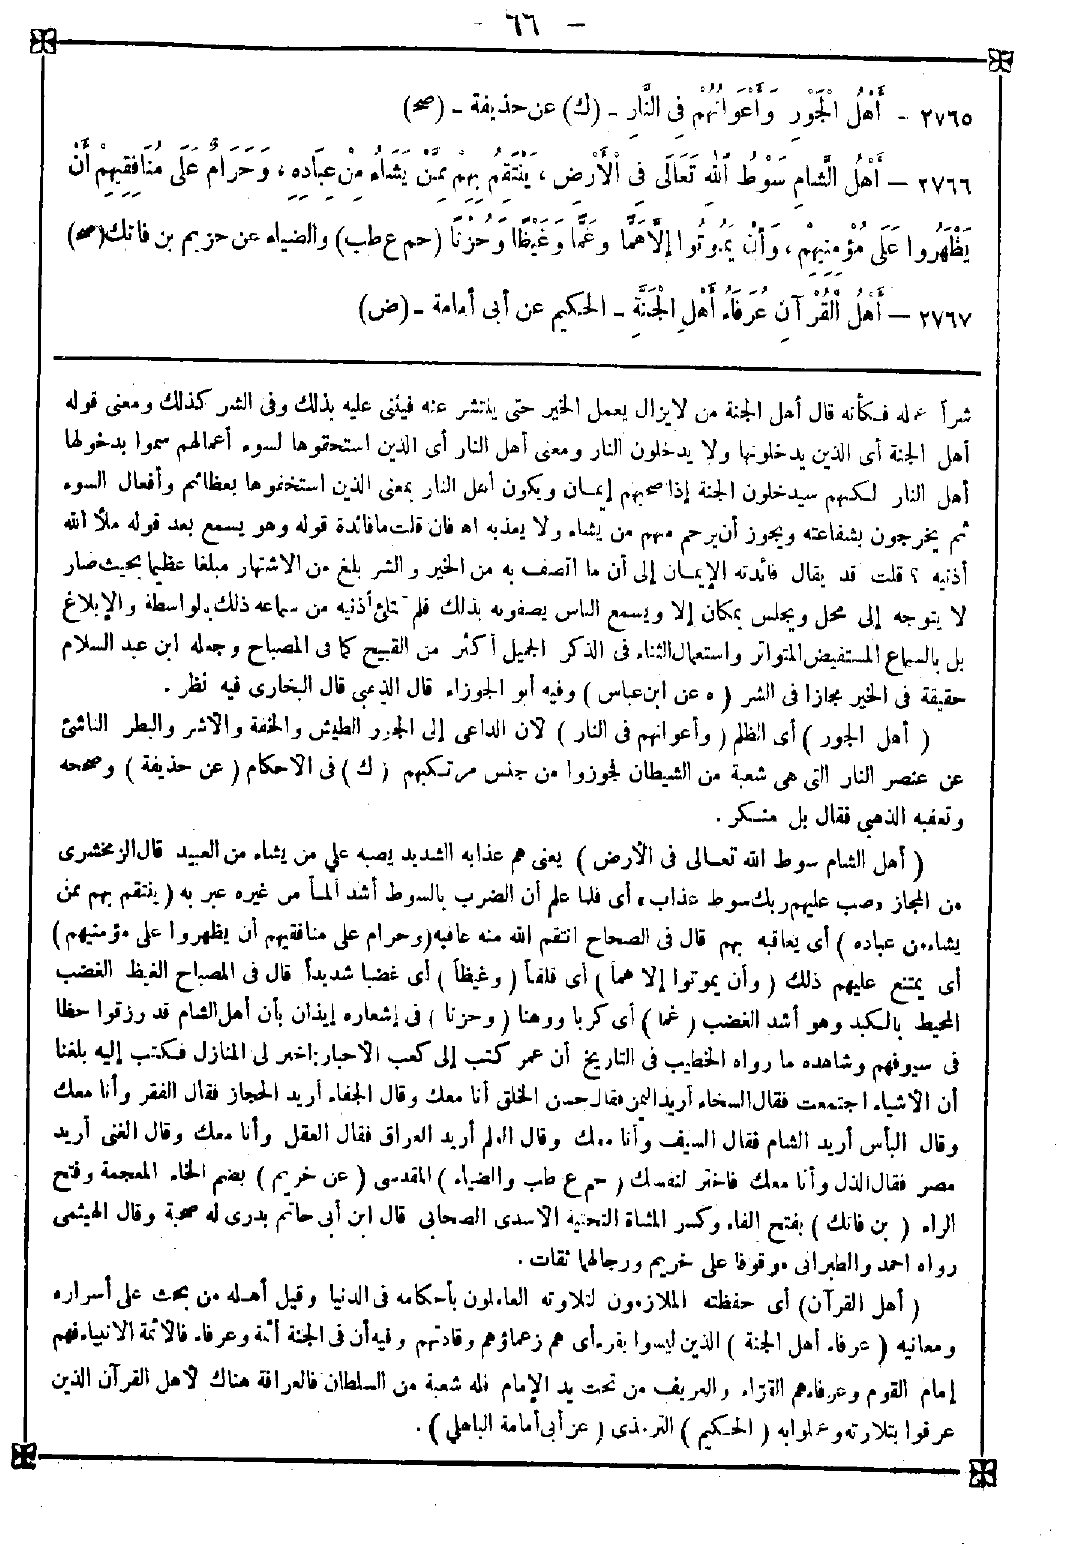 - ٦٦ -
٢٧٦٥ - أَهْلُ الْجَوْرِ وَأَعْوَانُهُمْ فِي النَّارِ - (ك) عن حذيفة - (صح)
٢٧٦٦ - أَهْلُ الشَّامِ سَوْطُ اللهِ تَعَالَى فِي الْأَرْضِ ، يَنْتَقِمُ بِهِمْ مِمَّنْ يَشَاءُ مِنْ عِبَادِهِ ، وَحَرَامٌ عَلَى مُنَافِقِيهِمْ أَنْ
يَظْهَرُوا عَلَى مُؤْمِنِيهِمْ ، وَأَنْ يَمُوتُوا إِلَّا هَمًّا وَغَمًّا وَغَيْظًا وَحُزْنًا (حم ع طب) والضياء عن خزيم بن فاتك (صح)
٢٧٦٧ - أَهْلُ الْقُرْآنِ عُرَفَاءُ أَهْلِ الْجَنَّةِ - الحكيم عن أبى أمامة - (ض)
شراً عمله فكأنه قال أهل الجنة من لايزال يعمل الخير حتى ينتشر عنه فيثنى عليه بذلك وفى الشر كذلك ومعنى قوله
أهل الجنة أى الذين يدخلونها ولا يدخلون النار ومعنى أهل النار أى الذين استحقوها لسوء أعمالهم سموا بدخولها
أهل النار لكنهم سيدخلون الجنة إذا صحبهم إيمان ويكون أهل النار بمعنى الذين استحقوها بعظائم وأفعال السوء
ثم يخرجون بشفاعته ويجوز أن يرحم منهم من يشاء ولا يعذبه اه فان قلت مافائدة قوله وهو يسمع بعد قوله ملأ الله
أذنيه ؟ قلت قد يقال فائدته الإيمان إلى أن ما اتصف به من الخير والشر بلغ من الاشتهار مبلغا عظيما بحيث صار
لا يتوجه إلى محل ويجلس بمكان إلا ويسمع الناس يصفونه بذلك فلم تمتلئ أذنيه من سماعه ذلك بالواسطة والإبلاغ
بل بالسماع المستفيض المتواتر واستعمال الثناء فى الذكر الجميل أكثر من القبيح كما فى المصباح وجعله ابن عبد السلام
حقيقة فى الخير مجازا فى الشر ( ه عن ابن عباس ) وفيه أبو الجوزاء قال الذهبى قال البخارى فيه نظر .
( أهل الجور ) أى الظلم ( وأعوانهم فى النار ) لأن الداعى إلى الجور الطيش والخفة والأشر والبطر الناشئ
عن عنصر النار التى هى شعبة من الشيطان فجوزوا من جنس مرتكبهم ( ك ) فى الاحكام ( عن حذيفة ) وصححه
وتعقبه الذهبى فقال بل منكر .
( أهل الشام سوط الله تعالى فى الأرض ) يعنى هم عذابه الشديد يصبه على من يشاء من العبيد قال الزمخشرى
من المجاز «صب عليهم ربك سوط عذاب» أى فلما علم أن الضرب بالسوط أشد ألماً من غيره عبر به ( ينتقم بهم ممن
يشاء من عباده ) أى يعاقبه بهم قال فى الصحاح انتقم الله منه عاقبه (وحرام على منافقيهم أن يظهروا على مؤمنيهم)
أى يمتنع عليهم ذلك ( وأن يموتوا إلا هماً ) أى قلقاً ( وغيظاً ) أى غضبا شديداً قال فى المصباح الغيظ الغضب
المحيط بالكبد وهو أشد الغضب ( غما ) أى كربا ووهنا ( وحزنا ) فى إشعاره إيذان بأن أهل الشام قد رزقوا حظا
فى سيوفهم وشاهده ما رواه الخطيب فى التاريخ أن عمر كتب إلى كعب الأحبار : اختر لى المنازل فكتب إليه بلغنا
أن الأشياء اجتمعت فقال السخاء أريد اليمن فقال حسن الخلق أنا معك وقال الجفاء أريد الحجاز فقال الفقر وأنا معك
وقال البأس أريد الشام فقال السيف وأنا معك وقال العلم أريد العراق فقال العقل وأنا معك وقال الغنى أريد
مصر فقال الذل وأنا معك فاختر لنفسك ( حم ع طب والضياء ) المقدسى ( عن خريم ) بضم الخاء المعجمة وفتح
الراء ( بن فاتك ) بفتح الفاء وكسر المثناة التحتية الأسدى الصحابى قال ابن أبى حاتم بدرى له صحبة وقال الهيثمى
رواه احمد والطبرانى موقوفا على خريم ورجالهما ثقات .
( أهل القرآن) أى حفظته الملازمون لتلاوته العاملون بأحكامه فى الدنيا وقيل أهله من بحث على أسراره
ومعانيه ( عرفاء أهل الجنة ) الذين ليسوا بقرء أى هم زعماؤهم وقادتهم وفيه أن فى الجنة أئمة وعرفاء فالأئمة الانبياء فهم
إمام القوم وعرفاءهم القراء والعريف من تحت يد الإمام فله شعبة من السلطان فالعرافة هناك لأهل القرآن الذين
عرفوا بتلاوته وعملوا به ( الحكيم ) الترمذى ( عن أبى أمامة الباهلى ) .